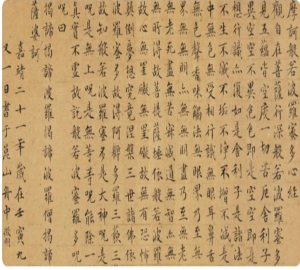 摩訶般若波羅蜜多心經
觀自在菩薩行深般若波羅蜜多時照
見五蘊皆空度一切苦厄舍利子色不
異空空不異色色即是空空即是色受
想行識亦復如是舍利子是諸法空相
不生不滅不垢不淨不增不減是故空
中無色無受想行識無眼耳鼻舌身意
無色聲香味觸法無眼界乃至無意識界
無無明亦無無明盡乃至無老死亦
無老死盡無苦集滅道無智亦無得
以無所得故菩提薩埵依般若波羅蜜多
故心無罣礙無罣礙故無有恐怖遠離
顛倒夢想究竟涅槃三世諸佛依般若
波羅蜜多故得阿耨多羅三藐三菩提
故知般若波羅蜜多是大神呪是大明
呪是無上呪是無等等呪能除一切苦
真實不虛故說般若波羅蜜多呪即說
呪曰
揭諦揭諦波羅揭諦波羅僧揭諦菩提
薩婆訶
嘉靖二十一年歲在壬寅九月廿
又一日書于崑山舟中徵明